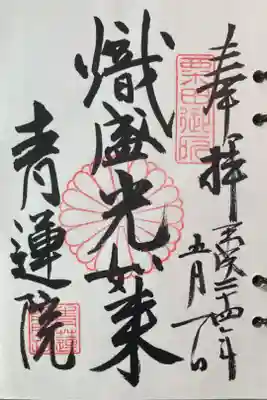 奉拝
粟田御所
平成二十四年
五月
熾盛光如来
青蓮院